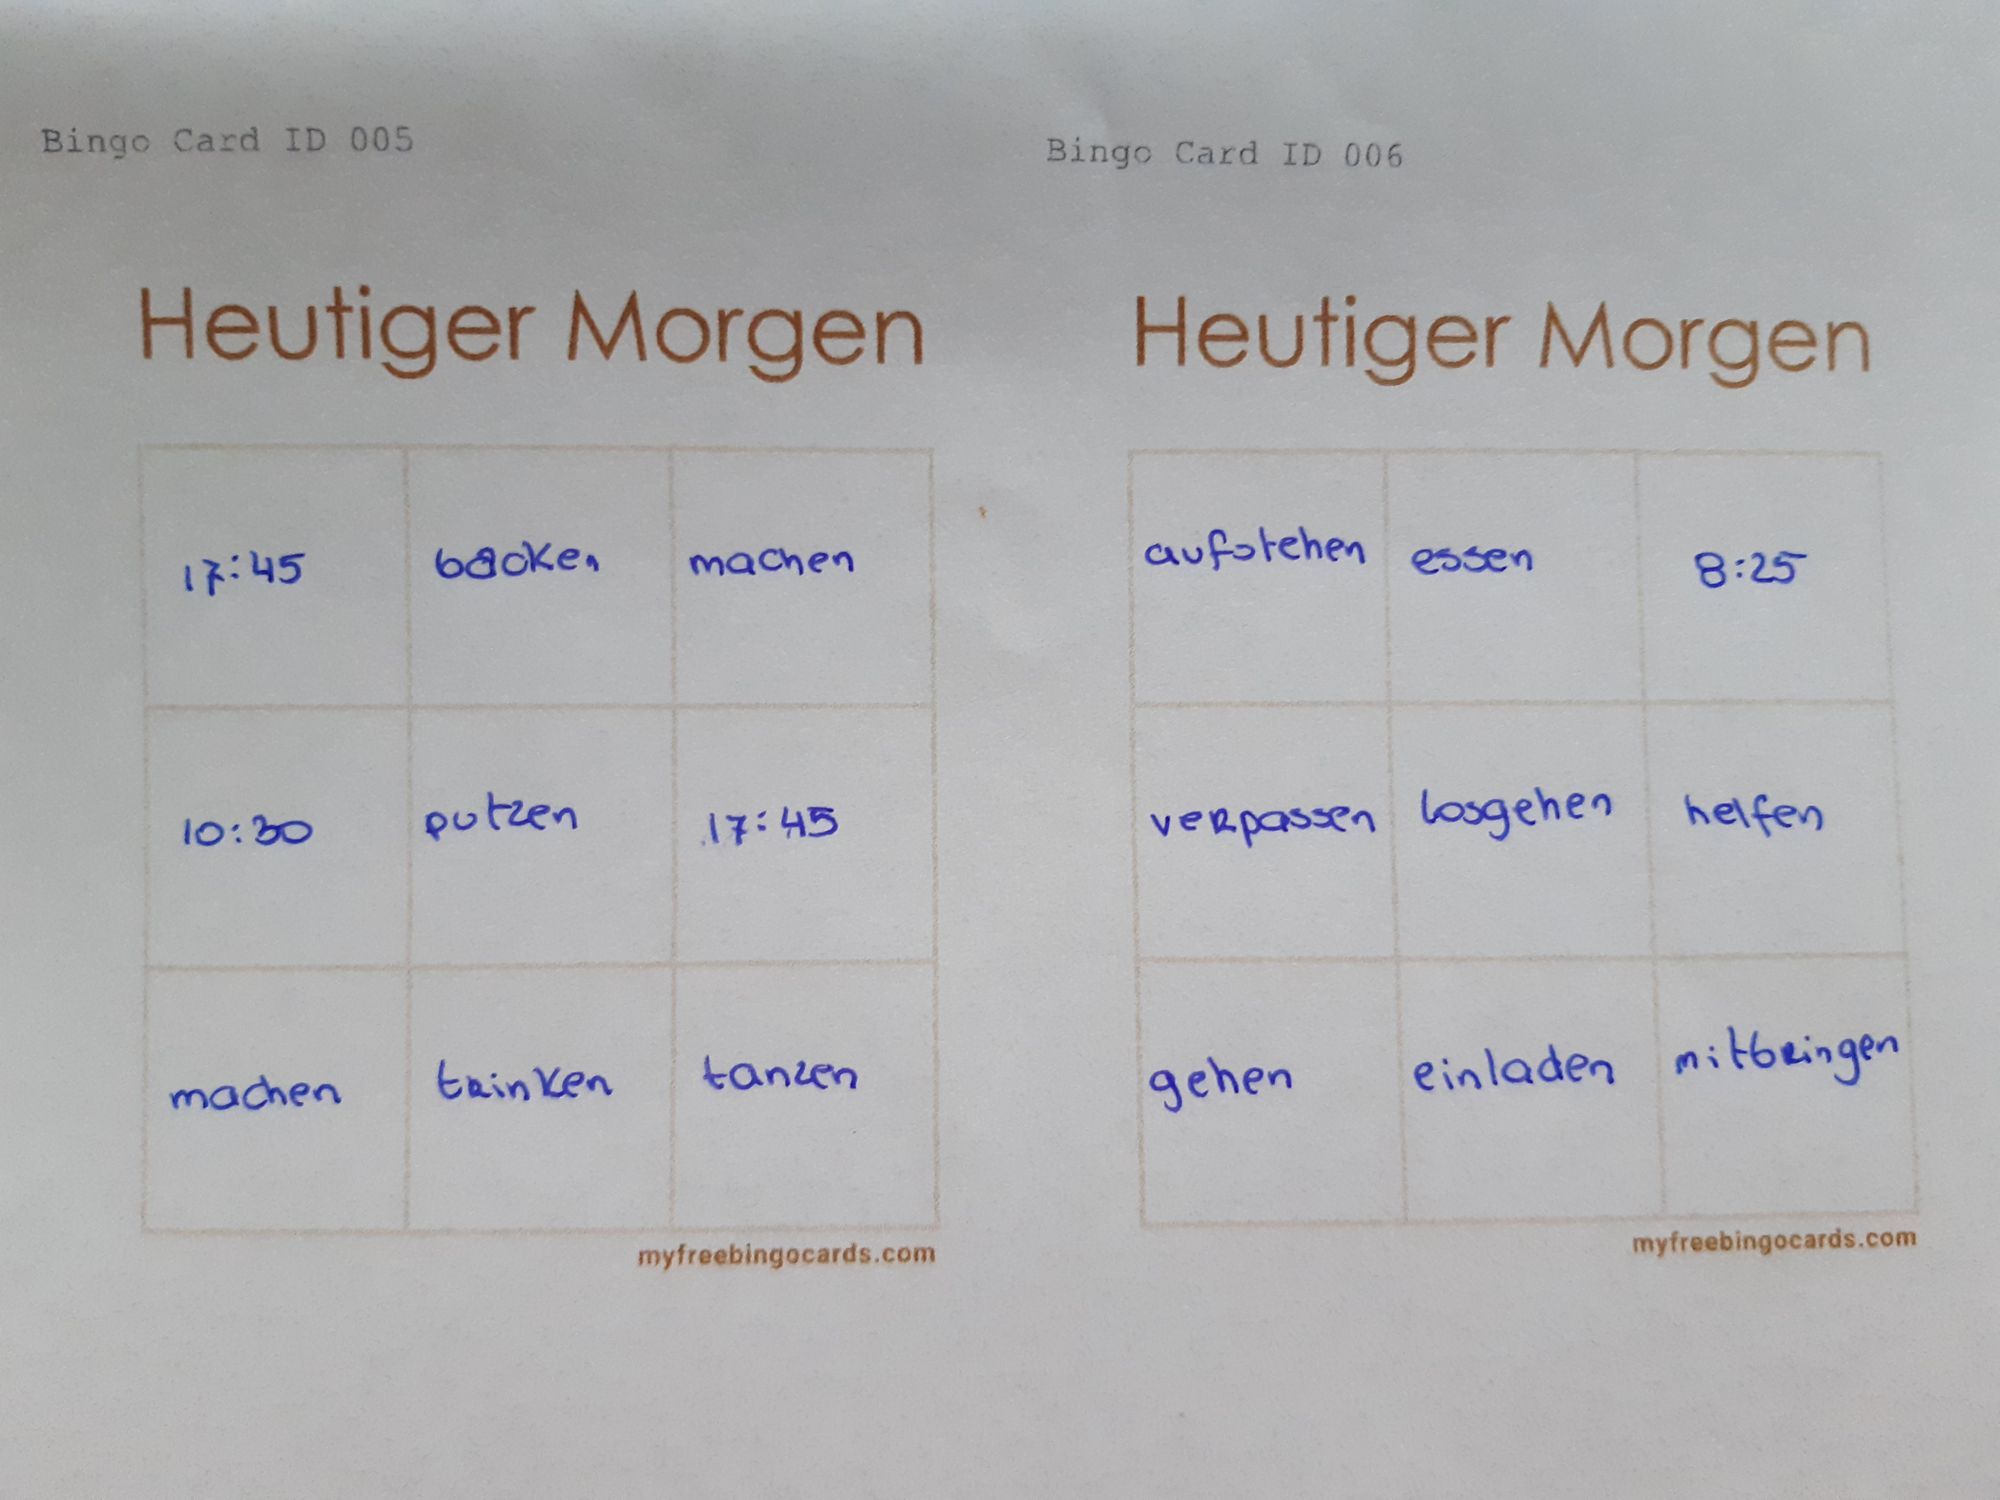 Bingo Card ID 005
Heutiger Morgen
17:45 backen machen
10:30 putzen 17:45
machen trinken tanzen
myfreebingocards.com
Bingo Card ID 006
Heutiger Morgen
aufstehen essen 8:25
verpassen losgehen helfen
gehen einladen mitbringen
myfreebingocards.com